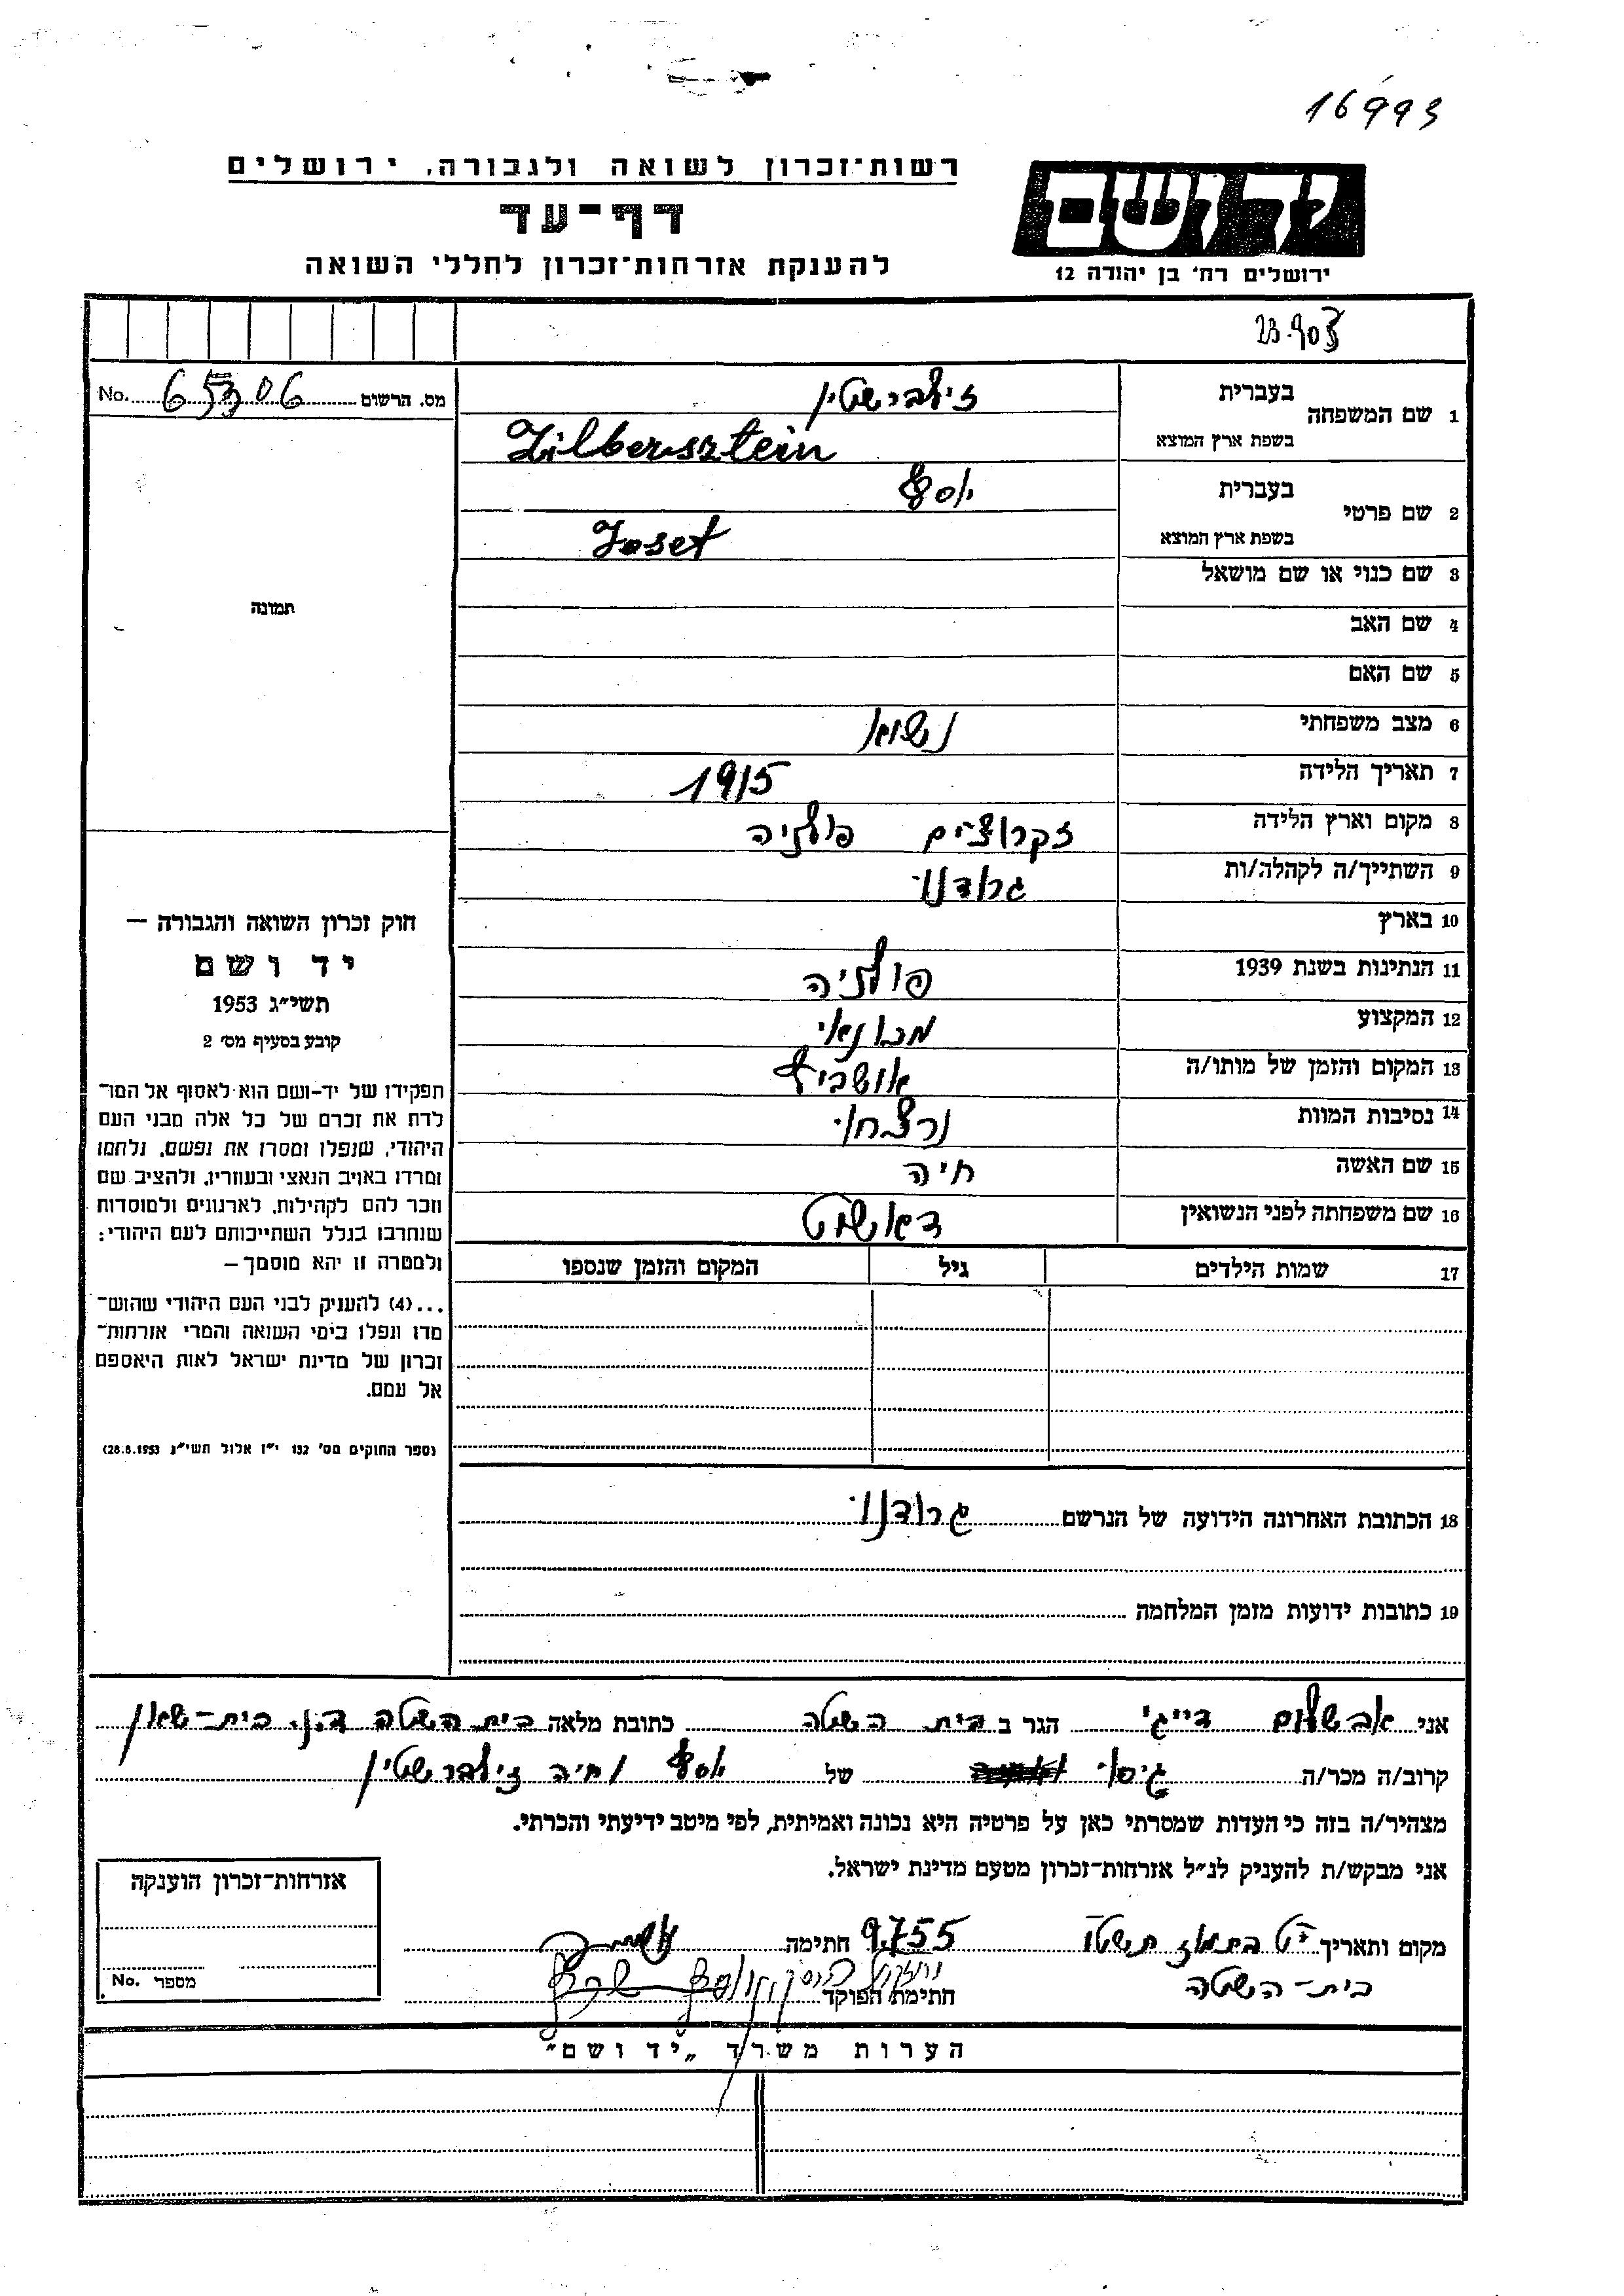 16993
יד ושם
ירושלים רח' בן יהודה 12
רשות־זכרון לשואה ולגבורה, ירושלים
דף-עד
להענקת אזרחות־זכרון לחללי השואה
מס. הרשום 65306 No.
1 שם המשפחה בעברית זילבישטין
בשפת ארץ המוצא Zilbersztein
2 שם פרטי בעברית יוסף
בשפת ארץ המוצא Josef
3 שם כנוי או שם מושאל
4 שם האב
5 שם האם
6 מצב משפחתי נשוא
7 תאריך הלידה 1915
8 מקום וארץ הלידה זקרוצים פולניה
9 השתייך/ה לקהלה/ות גרודנו
10 בארץ
11 הנתינות בשנת 1939 פולניה
12 המקצוע מכונאי
13 המקום והזמן של מותו/ה אושביץ
14 נסיבות המוות נרצחו
15 שם האשה חיה
16 שם משפחתה לפני הנשואין
17 שמות הילדים גיל המקום והזמן שנספו
תמונה
חוק זכרון השואה והגבורה —
יד ושם
תשי״ג 1953
קובע בסעיף מס׳ 2
תפקידו של יד-ושם הוא לאסוף אל המו־
לדת את זכרם של כל אלה מבני העם
היהודי, שנפלו ומסרו את נפשם, נלחמו
ומרדו באויב הנאצי ובעוזריו, ולהציב שם
וזכר להם לקהילות, לארגונים ולמוסדות
שנחרבו בגלל השתייכותם לעם היהודי:
ולמטרה זו יהא מוסמך —
...(4) להעניק לבני העם היהודי שהוש־
מדו ונפלו בימי השואה והמרי אזרחות־
זכרון של מדינת ישראל לאות היאספם
אל עמם.
(ספר החוקים מס׳ 132 י״ז אלול תשי״ג 28.8.1953)
18 הכתובת האחרונה הידועה של הנרשם גרודנו
19 כתובות ידועות מזמן המלחמה
אני אבשלום דייגי הגר ב בית השטה כתובת מלאה בית השטה ד.נ. בית-שאן
קרוב/ה מכר/ה גיסו של יוסף וחיה זילברשטין
מצהיר/ה בזה כי העדות שמסרתי כאן על פרטיה היא נכונה ואמיתית, לפי מיטב ידיעתי והכרתי.
אני מבקש/ת להעניק לנ״ל אזרחות-זכרון מטעם מדינת ישראל.
מקום ותאריך י"ט בתמוז תשטו 9.7.55 חתימה
בית-השטה
חתימת הפוקד
אזרחות-זכרון הוענקה
מספר No.
הערות משרד „יד ושם"